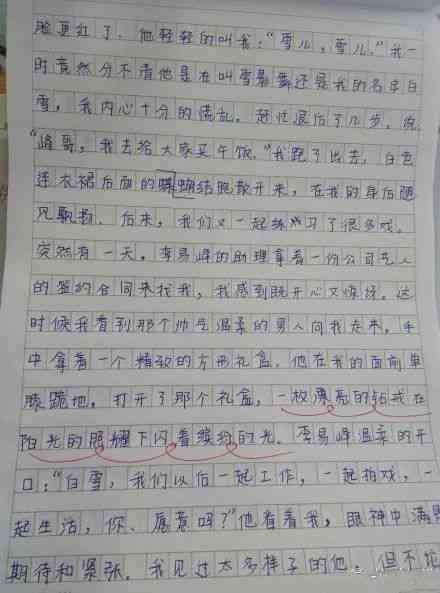 脸更红了，他轻轻的叫我："雪儿，雪儿。"我一
时竟然分不清他是在叫雪暴舞还是我的名字白
雪，我内心十分的慌乱。赶忙退后了几步，说
"峰哥，我去给大家买午饭。"我跑了出去，白色
连衣裙后面的蝴蝶结飘散开来，在我的身后随
风飘扬。后来，我们又一起练习了很多戏。
突然有一天，李易峰的助理拿着一份公司艺人
的签约合同来找我，我感到既开心又惊讶。这
时候我看到那个帅气温柔的男人向我走来，手
中拿着一个精致的方形礼盒，他在我的面前单
膝跪地，打开了那个礼盒，一枚漂亮的钻戒在
阳光的照耀下闪着缤纷的光。李易峰温柔的开
口："白雪，我们以后一起工作，一起拍戏，一
起生活，你、愿意吗？"他看着我，眼神中满是
期待和紧张。我见过太多样子的他，但不论